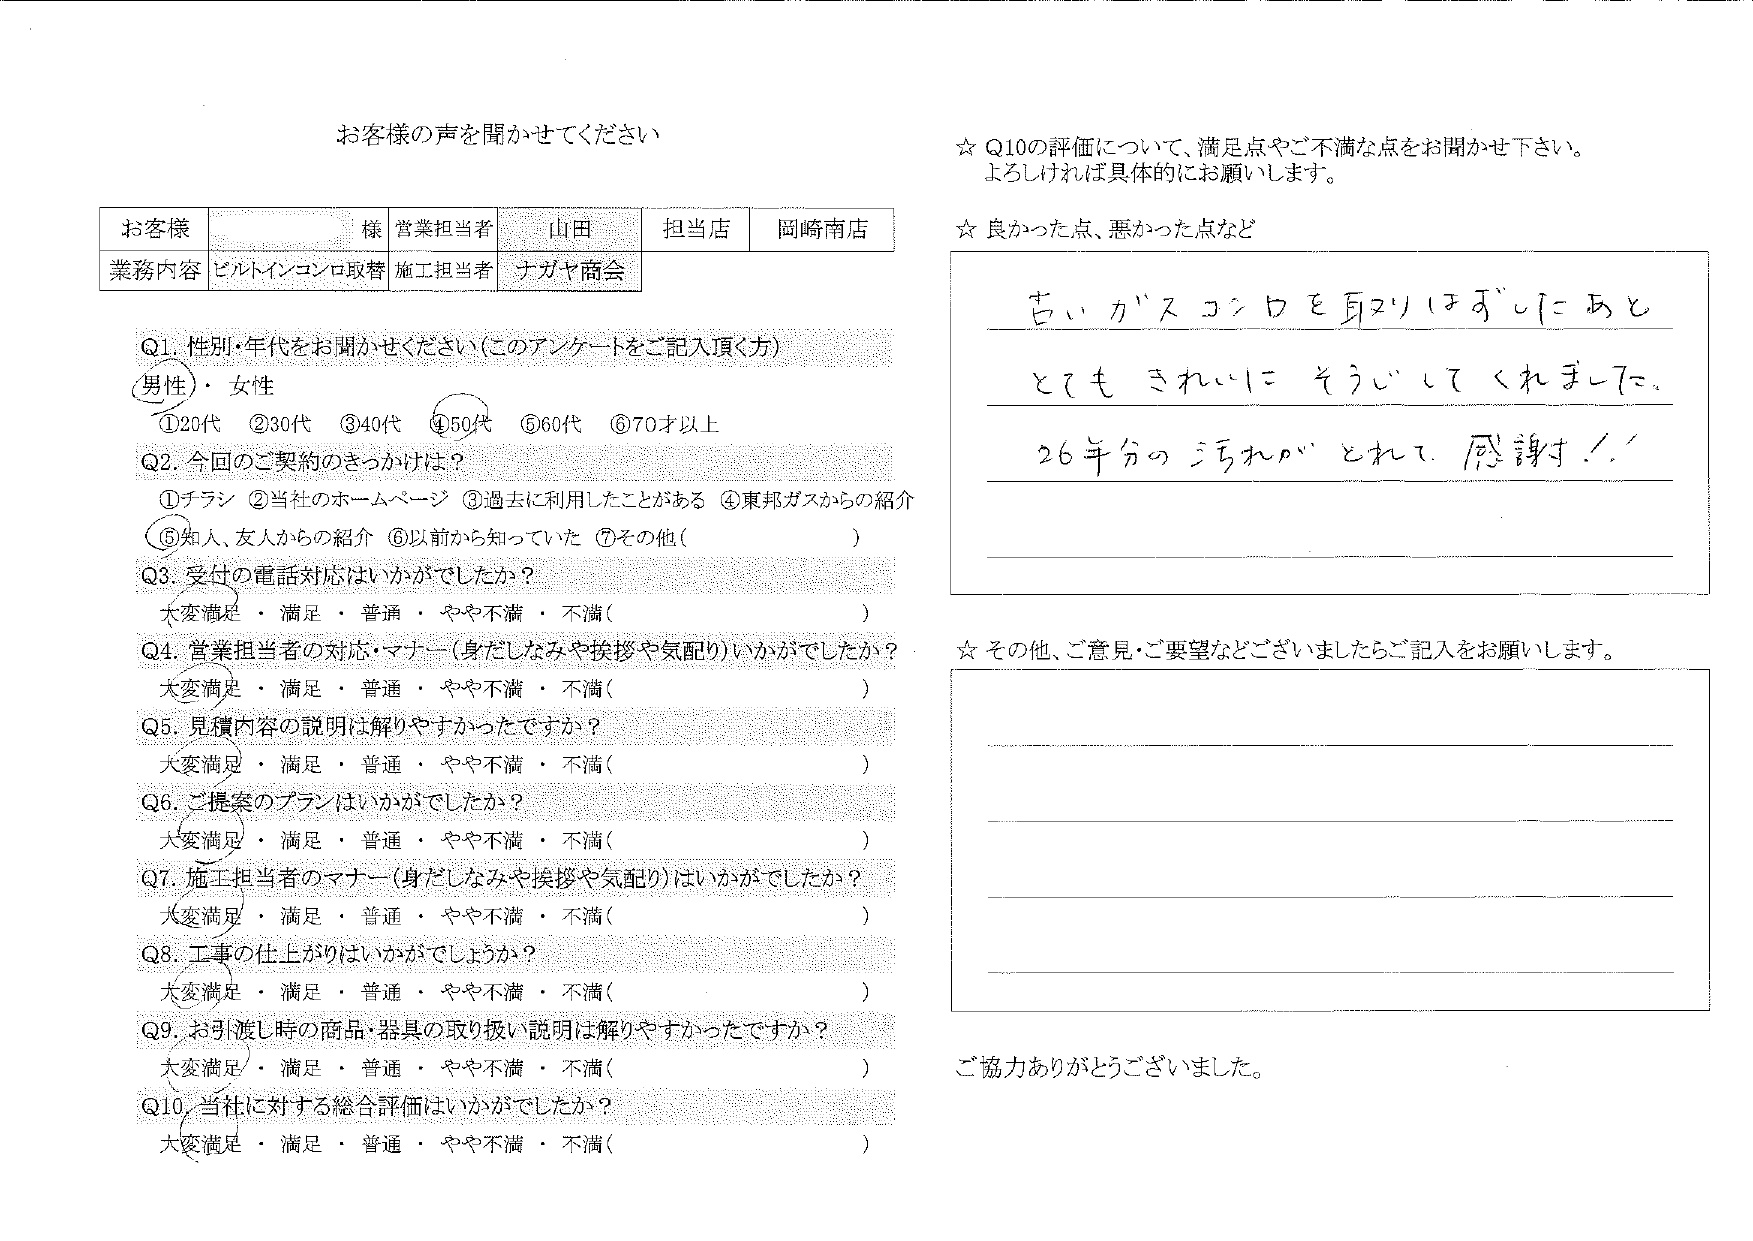 お客様の声を聞かせてください
お客様 様 営業担当者 山田 担当店 岡崎南店
業務内容 ビルトインコンロ取替 施工担当者 ナガヤ商会
Q1. 性別・年代をお聞かせください(このアンケートをご記入頂く方)
男性 ・ 女性
①20代 ②30代 ③40代 ④50代 ⑤60代 ⑥70才以上
Q2. 今回のご契約のきっかけは？
①チラシ ②当社のホームページ ③過去に利用したことがある ④東邦ガスからの紹介
⑤知人、友人からの紹介 ⑥以前から知っていた ⑦その他( )
Q3. 受付の電話対応はいかがでしたか？
大変満足 ・ 満足 ・ 普通 ・ やや不満 ・ 不満( )
Q4. 営業担当者の対応・マナー(身だしなみや挨拶や気配り)いかがでしたか？
大変満足 ・ 満足 ・ 普通 ・ やや不満 ・ 不満( )
Q5. 見積内容の説明は解りやすかったですか？
大変満足 ・ 満足 ・ 普通 ・ やや不満 ・ 不満( )
Q6. ご提案のプランはいかがでしたか？
大変満足 ・ 満足 ・ 普通 ・ やや不満 ・ 不満( )
Q7. 施工担当者のマナー(身だしなみや挨拶や気配り)はいかがでしたか？
大変満足 ・ 満足 ・ 普通 ・ やや不満 ・ 不満( )
Q8. 工事の仕上がりはいかがでしょうか？
大変満足 ・ 満足 ・ 普通 ・ やや不満 ・ 不満( )
Q9. お引渡し時の商品・器具の取り扱い説明は解りやすかったですか？
大変満足 ・ 満足 ・ 普通 ・ やや不満 ・ 不満( )
Q10. 当社に対する総合評価はいかがでしたか？
大変満足 ・ 満足 ・ 普通 ・ やや不満 ・ 不満( )
☆ Q10の評価について、満足点やご不満な点をお聞かせ下さい。
よろしければ具体的にお願いします。
☆ 良かった点、悪かった点など
古いガスコンロを取りはずしたあと
とても きれいに そうじしてくれました。
26年分の汚れが とれて 感謝！！
☆ その他、ご意見・ご要望などございましたらご記入をお願いします。
ご協力ありがとうございました。